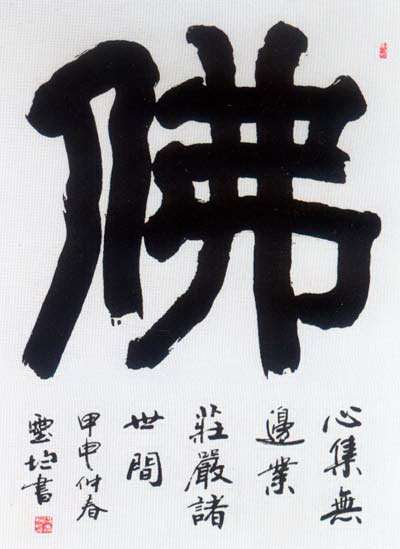 佛
心集無
邊業
莊嚴諸
世間
甲申仲春
均書